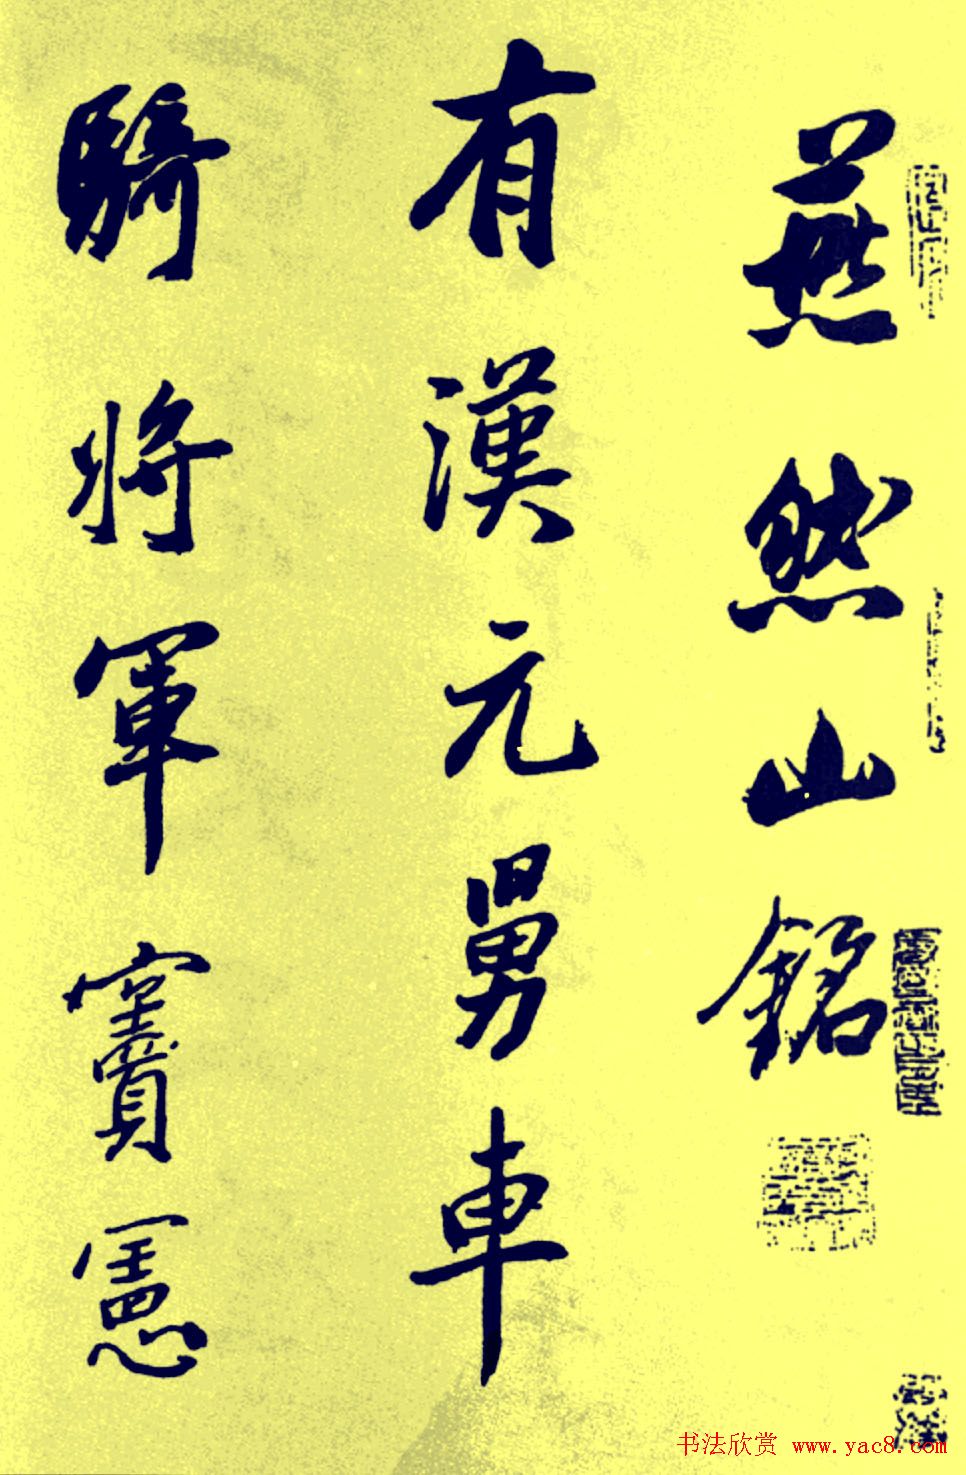 燕然山銘
有漢元舅車
騎將軍竇憲
书法欣赏 www.yac8.com